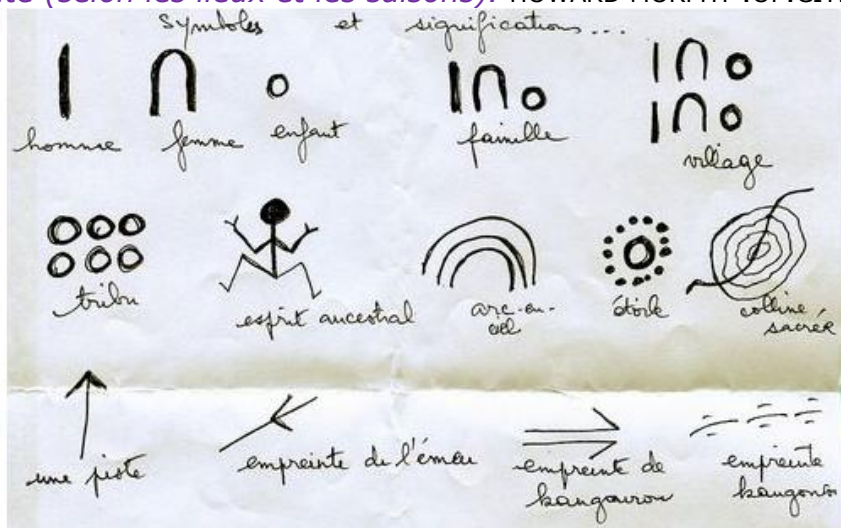 (selon les lieux et les saisons). HOWARD MORPHY
Symboles et significations...
homme femme enfant famille village
tribu esprit ancestral arc-en-ciel étoile colline sacrée
une piste empreinte de l'émeu empreinte de kangourou empreinte kangourou